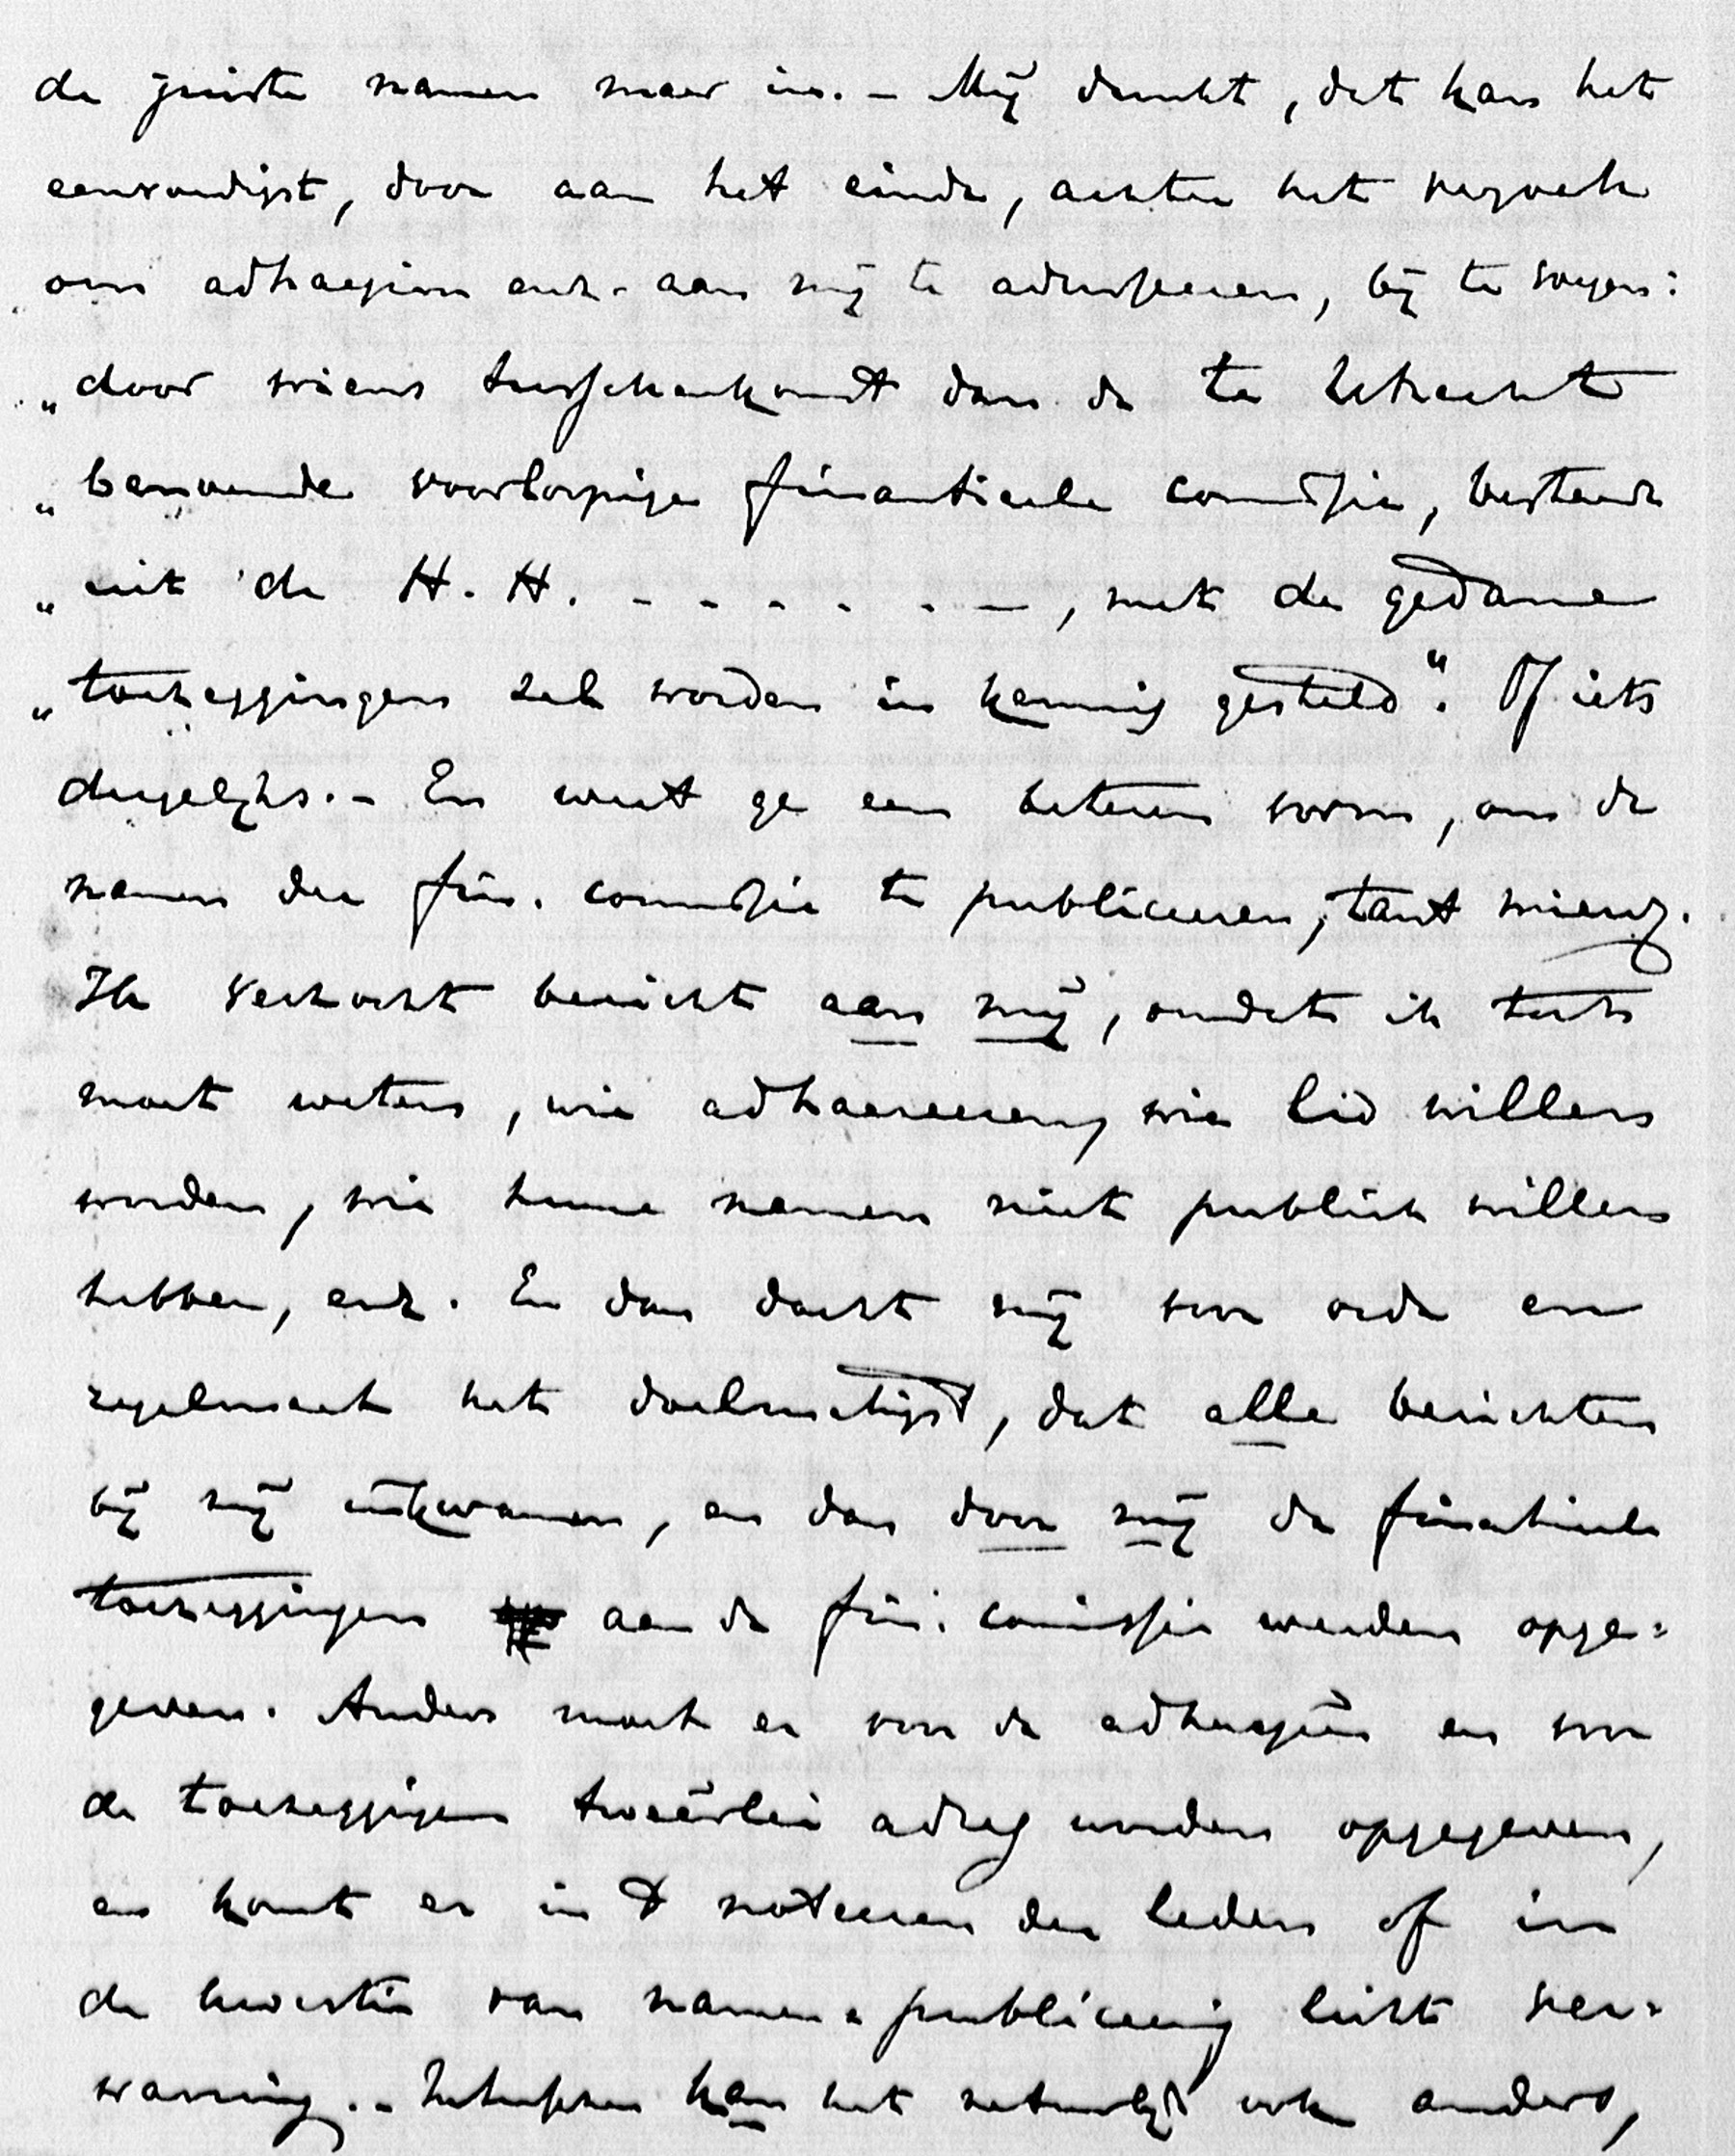 de juiste namen maar in. – Mij dunkt, dat kan het
eenvoudigst, door aan het einde, achter het verzoek
om adhaesion enz. aan mij te adresseeren, bij te voegen:
„door wiens tusschenkomst dan de te Utrecht
„benoemde voorloopige finantieele commissie, bestaande
„uit de H. H. - - - - - –, met de gedane
„toezeggingen zal worden in kennis gesteld". Of iets
dergelijks. – En weet ge een beteren vorm, om de
namen der fin. commissie te publiceeren, tant mieux.
Ik verzocht bericht aan mij, omdat ik toch
moet weten, wie adhaereeren, wie lid willen
worden, wie hunne namen niet publiek willen
hebben, enz. En dan dacht mij voor orde en
regelmaat het doelmatigst, dat alle berichten
bij mij inkwamen, en dan door mij de finantieele
toezeggingen aan de fin. comissie werden opge=
geven. Anders moet er voor de adhaesiën en voor
de toezeggingen tweeërlei adres worden opgegeven,
en komt er in 't noteeren der leden of in
de kwestie van namen-publiceering licht ver=
warring. – Intusschen kan het natuurlijk ook anders,